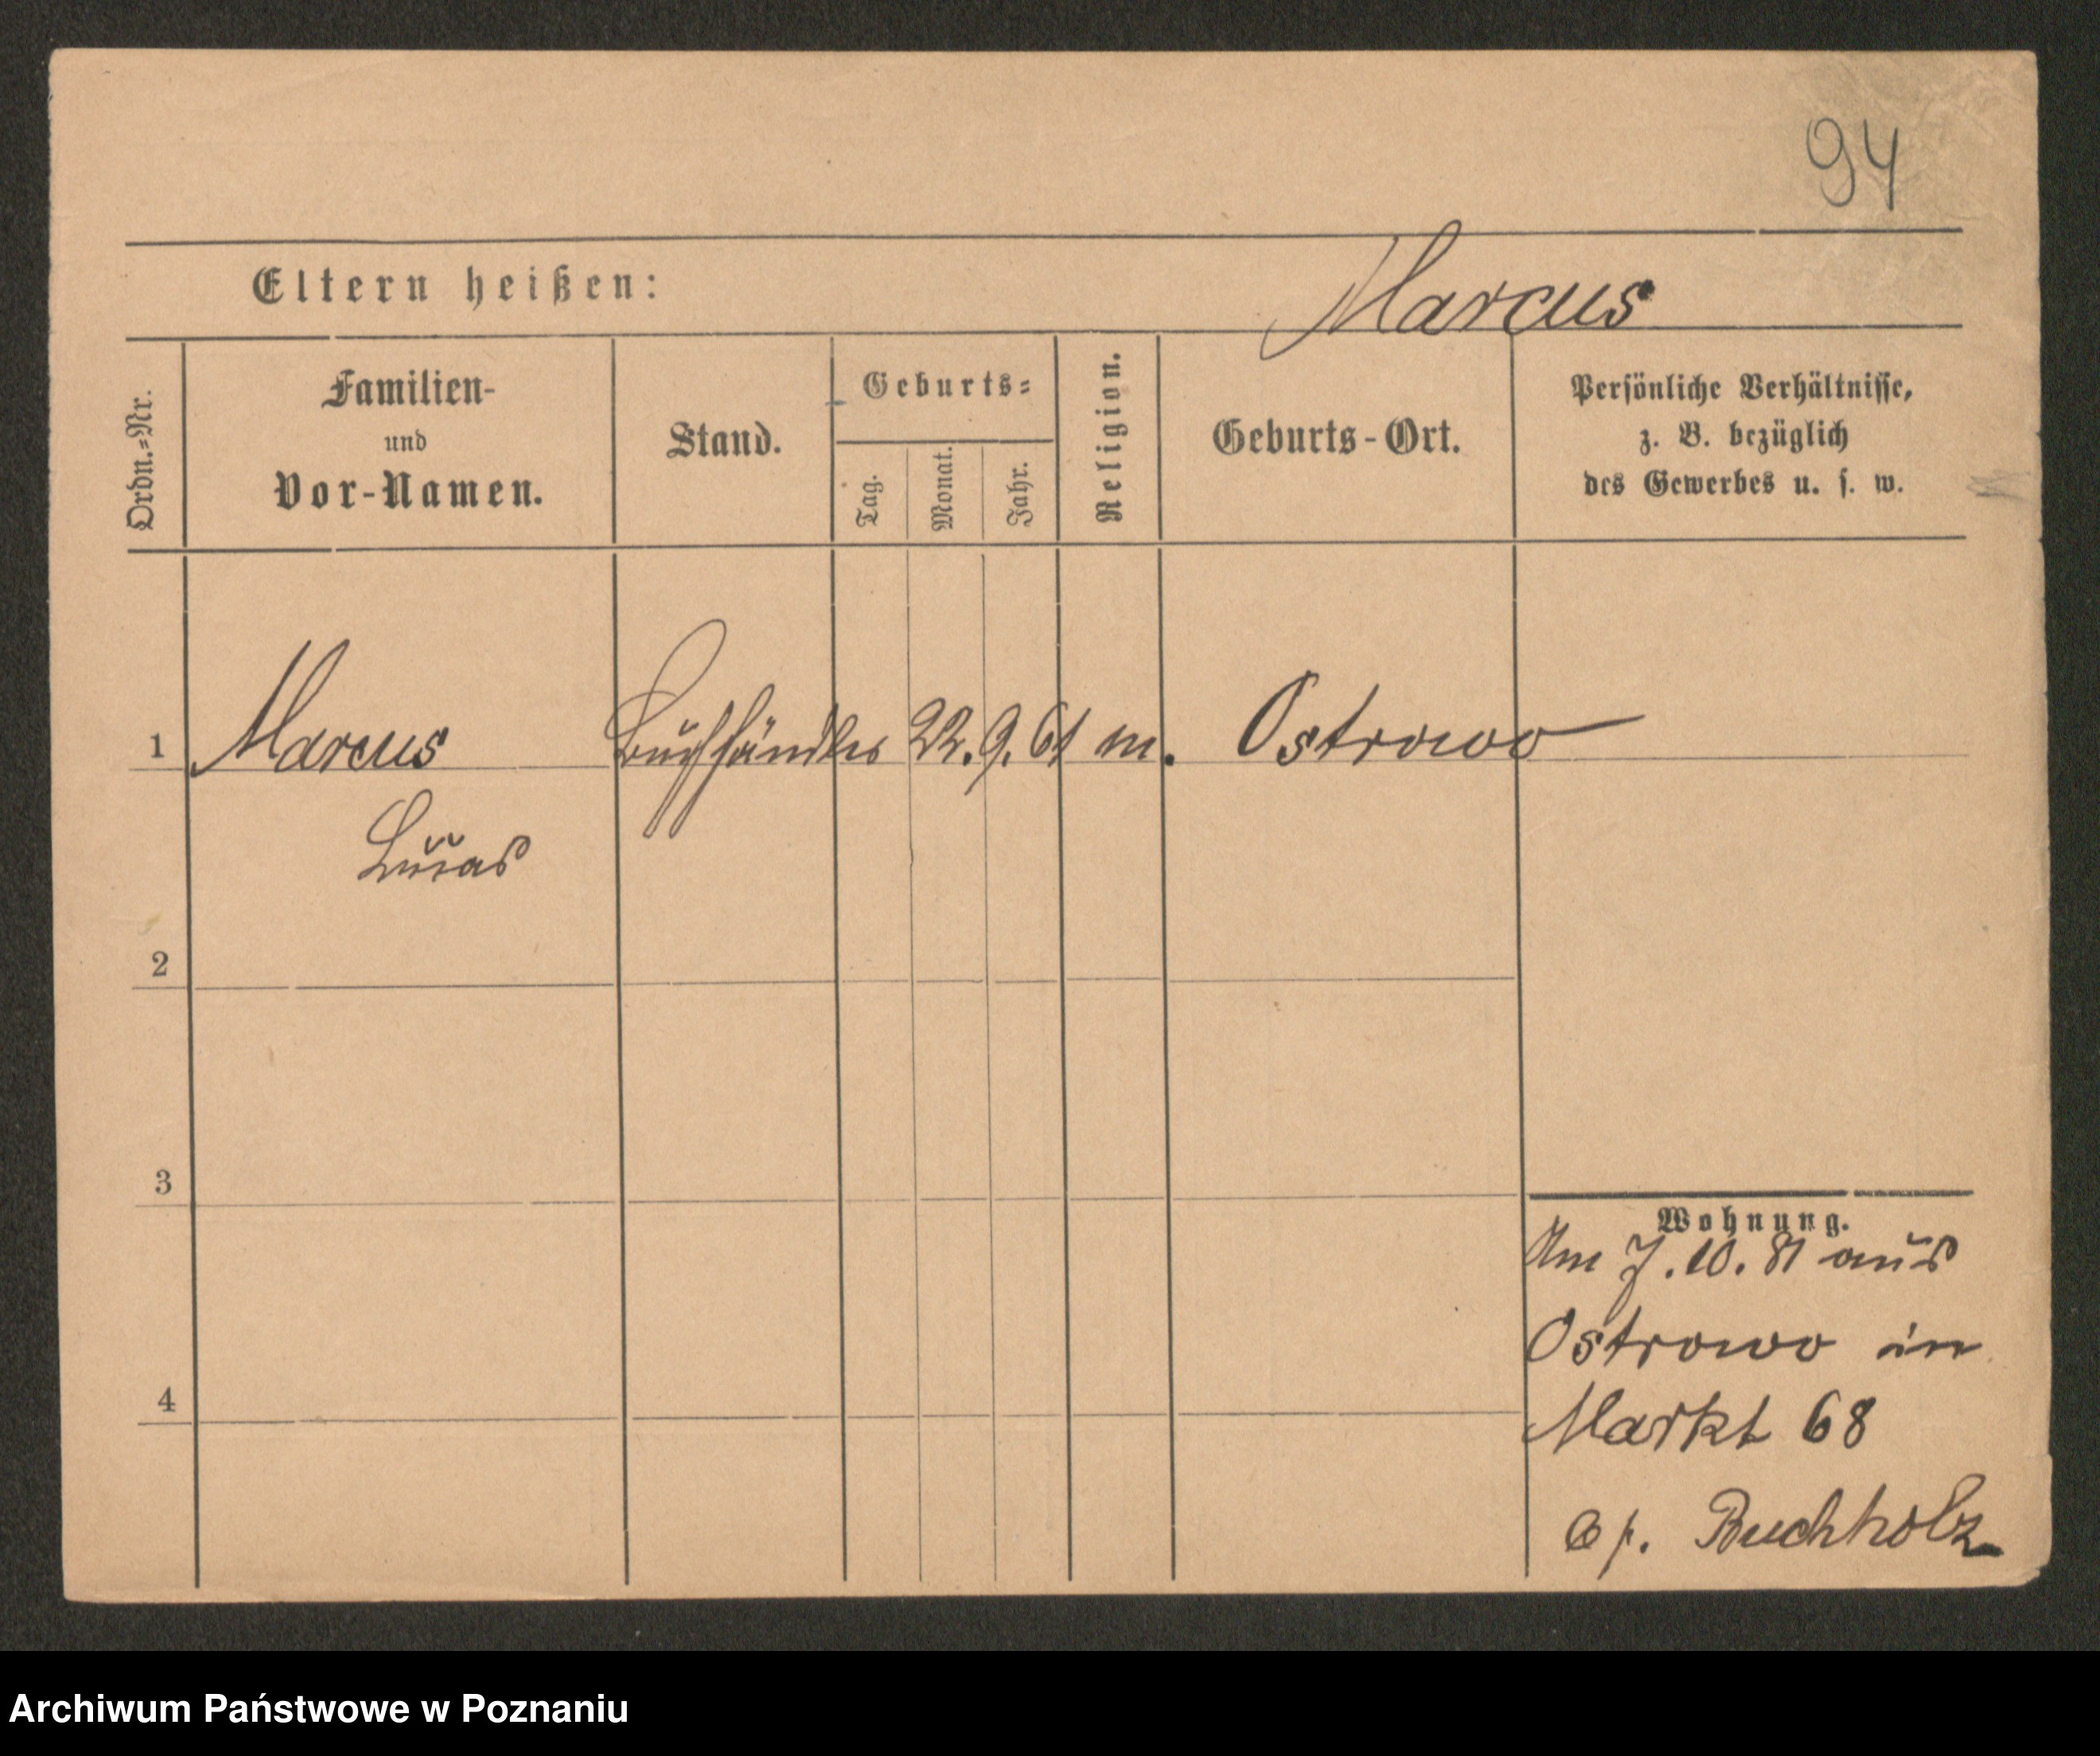 94
Eltern heißen:
Marcus
Ordn.=Nr.
Familien-
und
Vor-Namen.
Stand.
Geburts=
Tag.
Monat.
Jahr.
Religion.
Geburts-Ort.
Persönliche Verhältnisse,
z. B. bezüglich
des Gewerbes u. s. w.
1 Marcus Buchhändler 22. 9. 61 m. Ostrowo
Lucas
2
3
4
Wohnung.
Am 7. 10. 81 aus
Ostrowo in
Markt 68
Buchholz
Archiwum Państwowe w Poznaniu